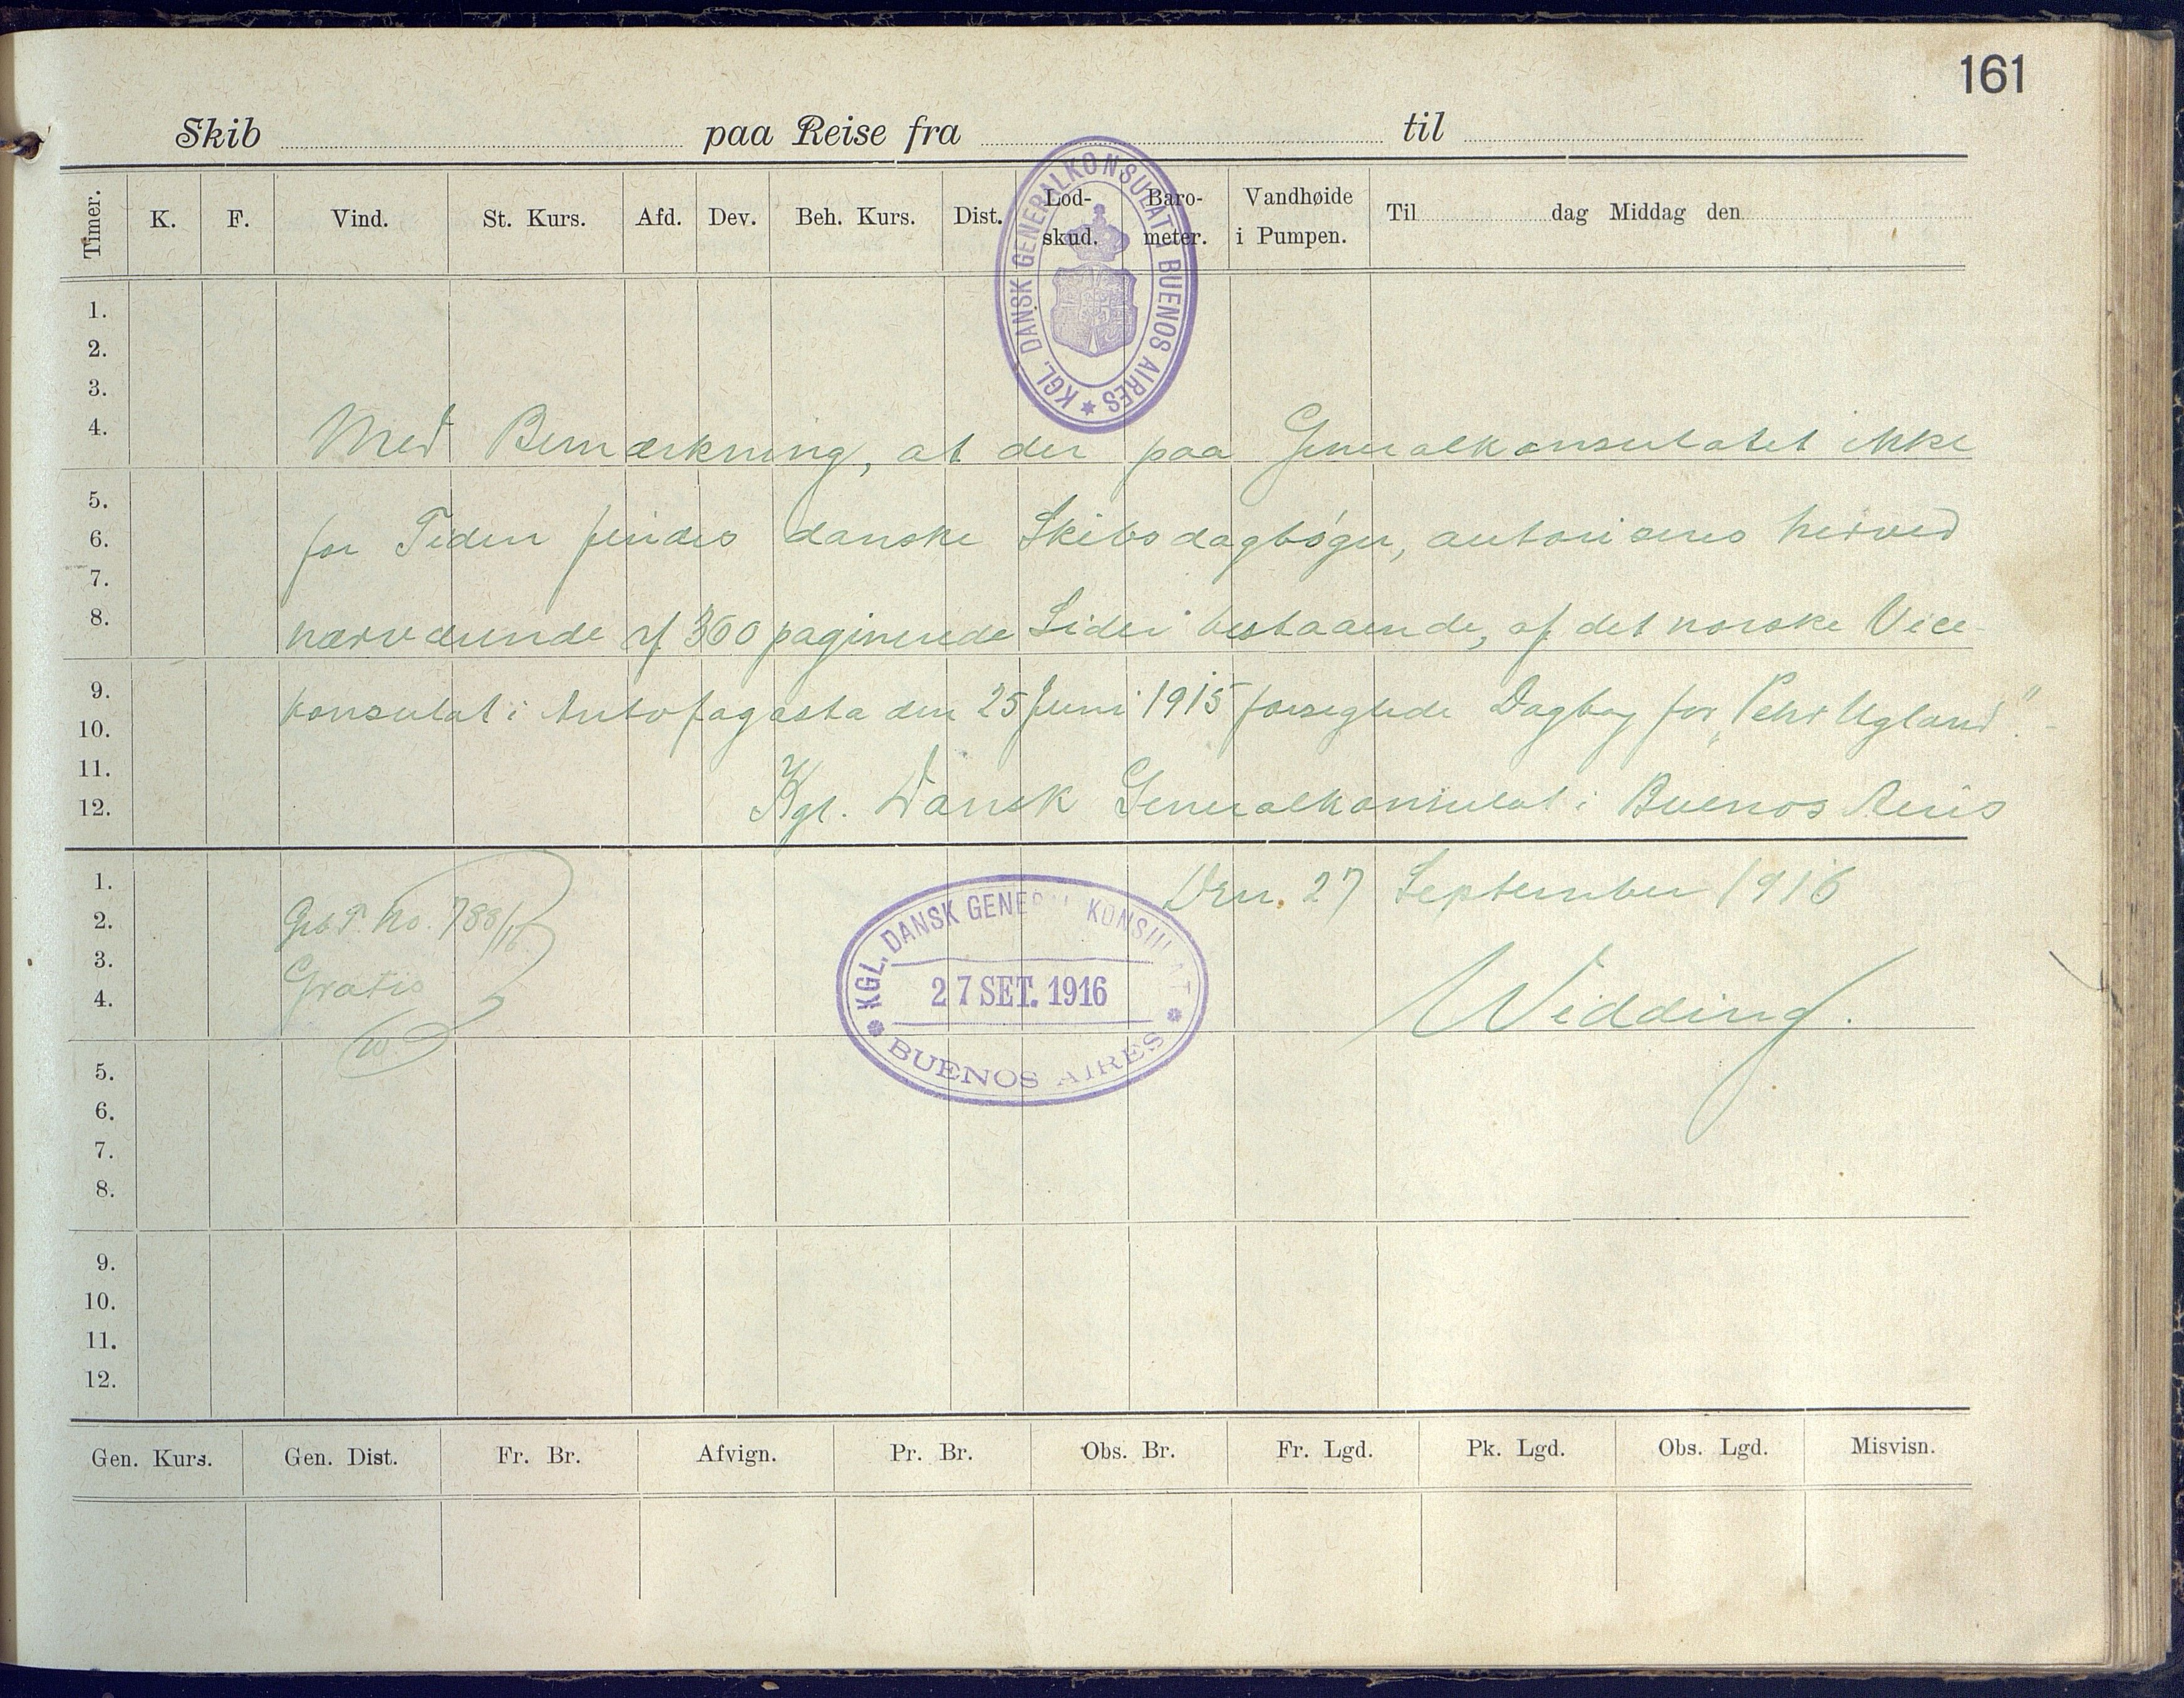 161
Skib paa Reise fra til
Timer. K. F. Vind. St. Kurs. Afd. Dev. Beh. Kurs. Dist. Lod-skud. Baro-meter. Vandhøide i Pumpen. Til dag Middag den
KGL. DANSK GENERALKONSULAT I BUENOS AIRES
1.
2.
3.
4. Med Bemærkning, at der paa Generalkonsulatet ikke
5.
6. for Tiden findes danske Skibsdagbøger, autoriseres herved
7.
8. nærværende af 360 paginerede Sider bestaaende, af det norske Vice-
9. konsulat i Antofagasta den 25 Juni 1915 forseglede Dagbog for "Pehr Ugland".-
10.
11.
12. Kgl. Dansk Generalkonsulat i Buenos Aires
1. Den. 27 September 1916
2. No. 788/16
3. Gratis
4. Widding.
KGL. DANSK GENERAL KONSULAT
27 SET. 1916
BUENOS AIRES
5.
6.
7.
8.
9.
10.
11.
12.
Gen. Kurs. Gen. Dist. Fr. Br. Afvign. Pr. Br. Obs. Br. Fr. Lgd. Pk. Lgd. Obs. Lgd. Misvisn.